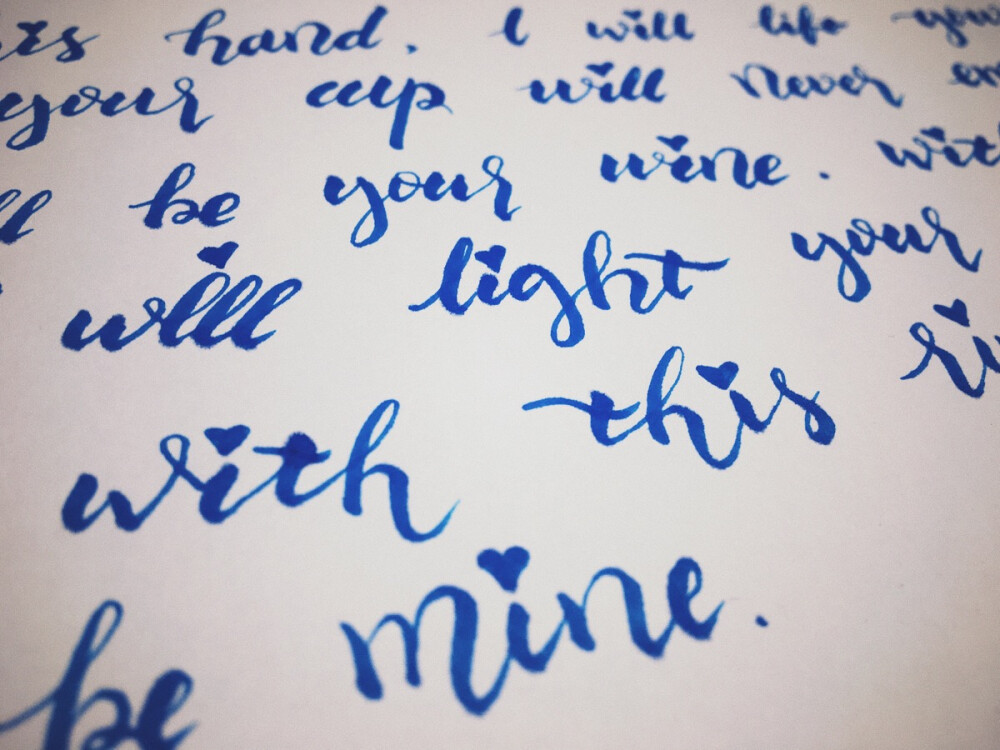 is hand. I will life your
your cup will never em
ll be your wine. with
will light your
with this ri
be mine.